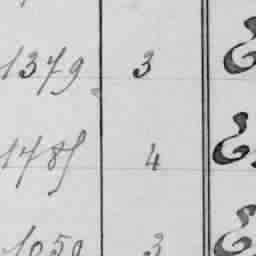 1379 3 E
1785 4 E.
1050 3 E